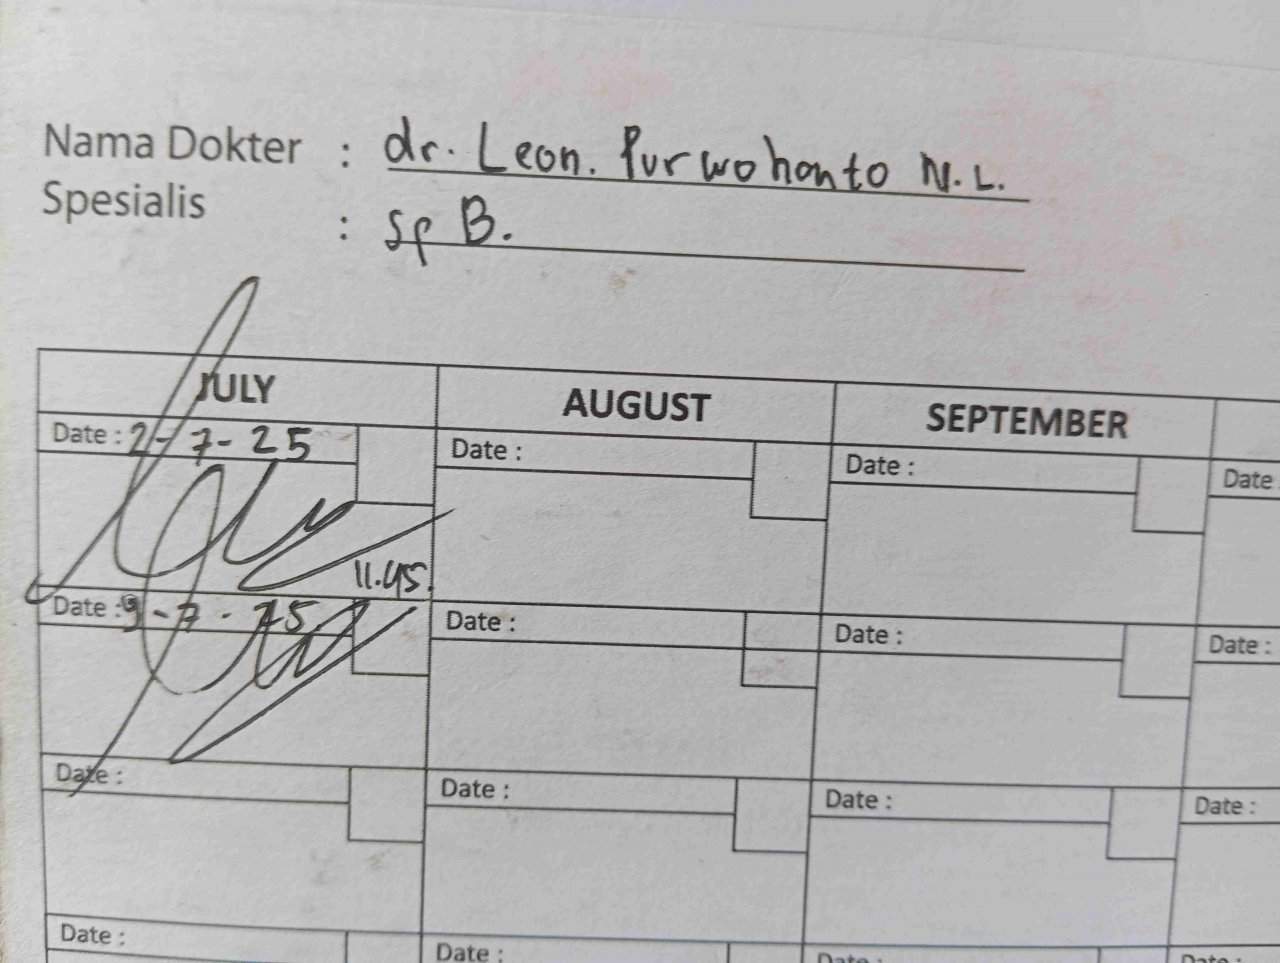 Nama Dokter : dr. Leon. Purwohanto N.L.
Spesialis : Sp B.
JULY AUGUST SEPTEMBER
Date : 2-7-25 Date : Date : Date
11.45.
Date : 9-7-25 Date : Date : Date :
Date : Date : Date : Date :
Date : Date : Date : Date :